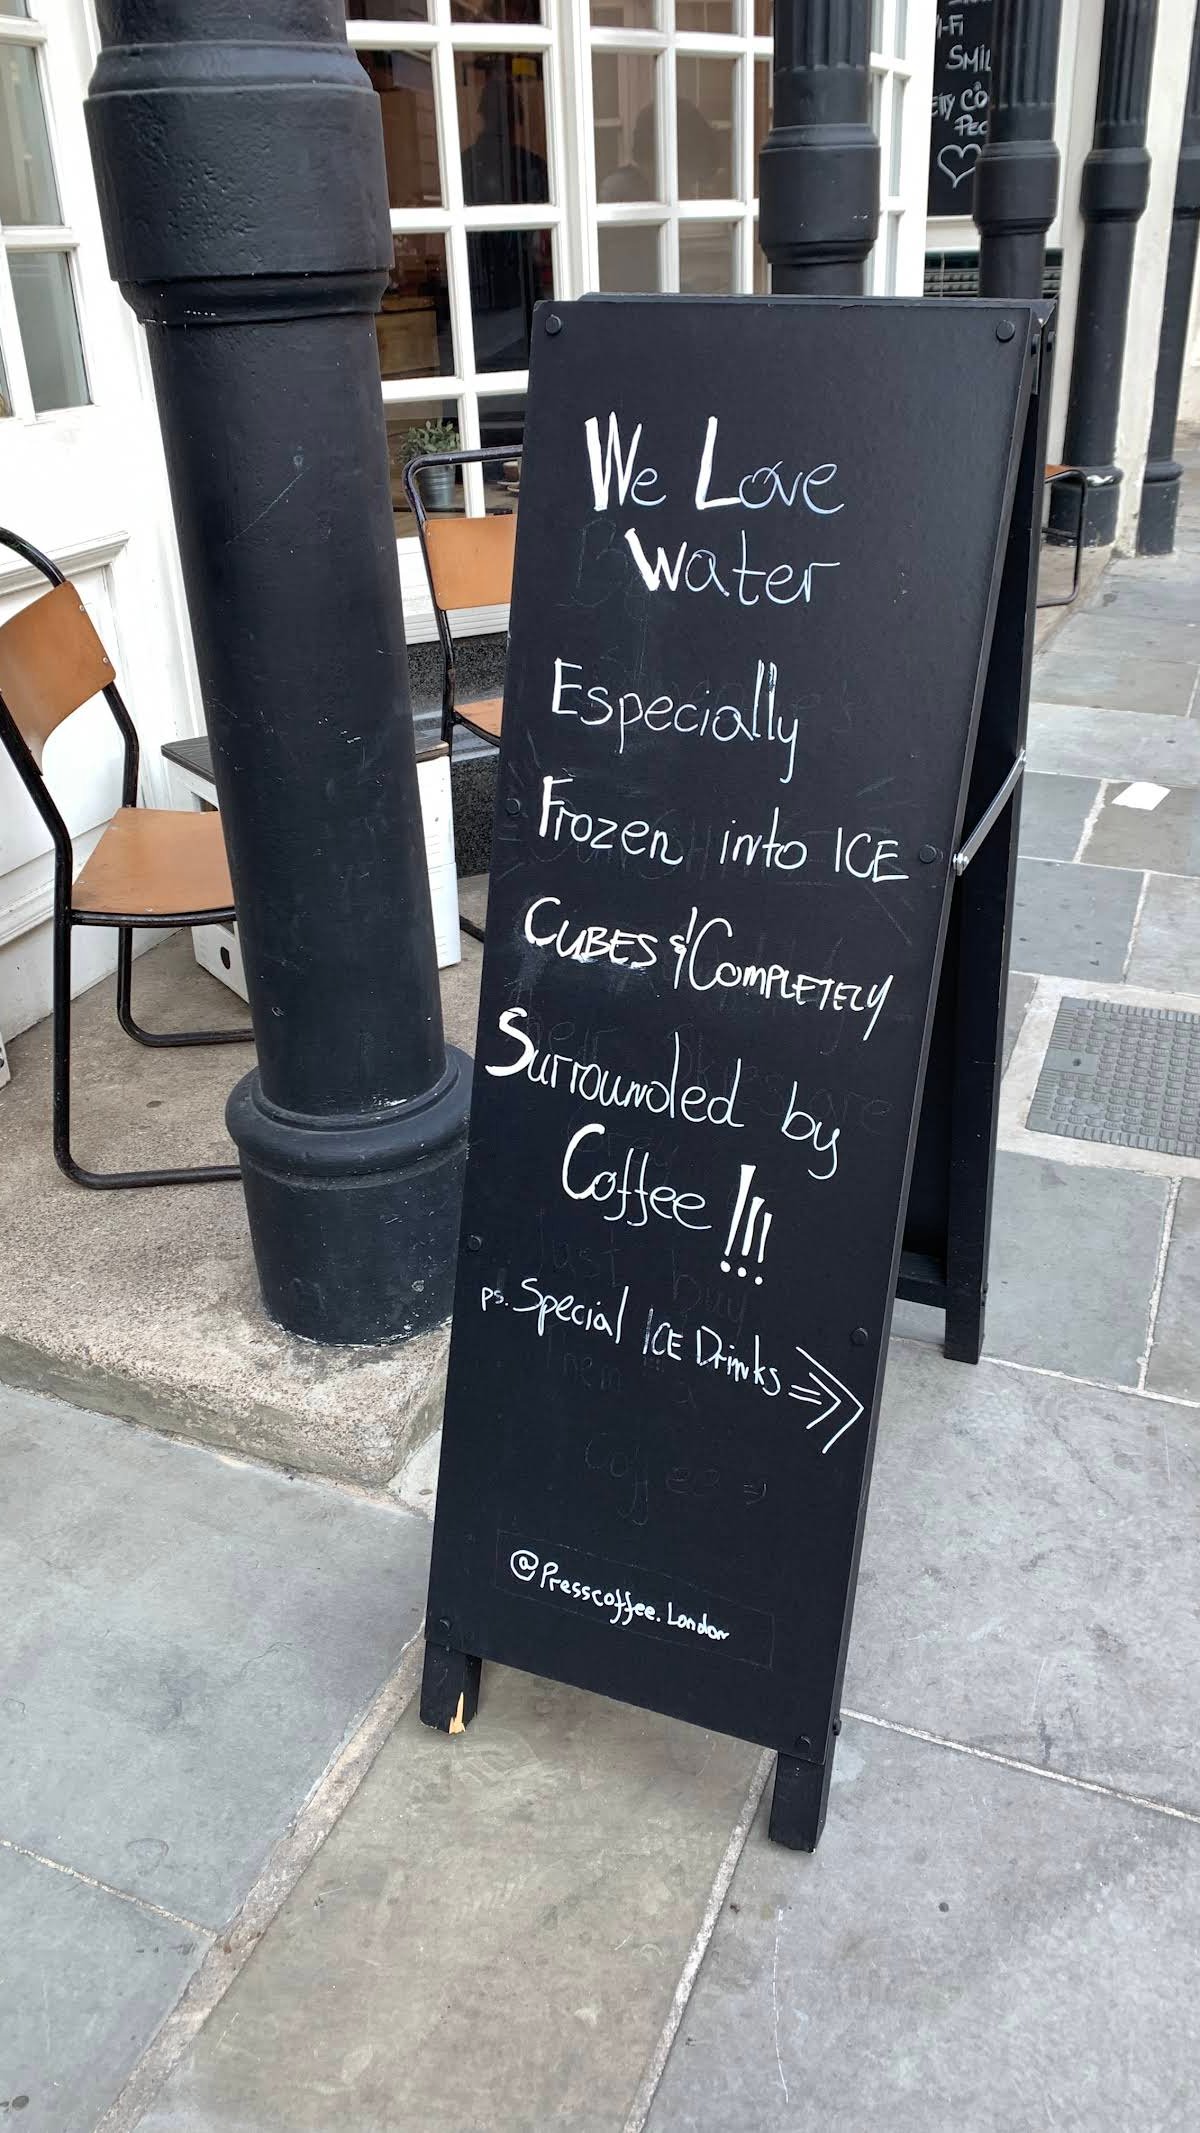 We Love
Water
Especially
Frozen into ICE
CUBES & COMPLETELY
Surrounded by
Coffee !!!
ps. Special ICE Drinks =>>
@Presscoffee.London